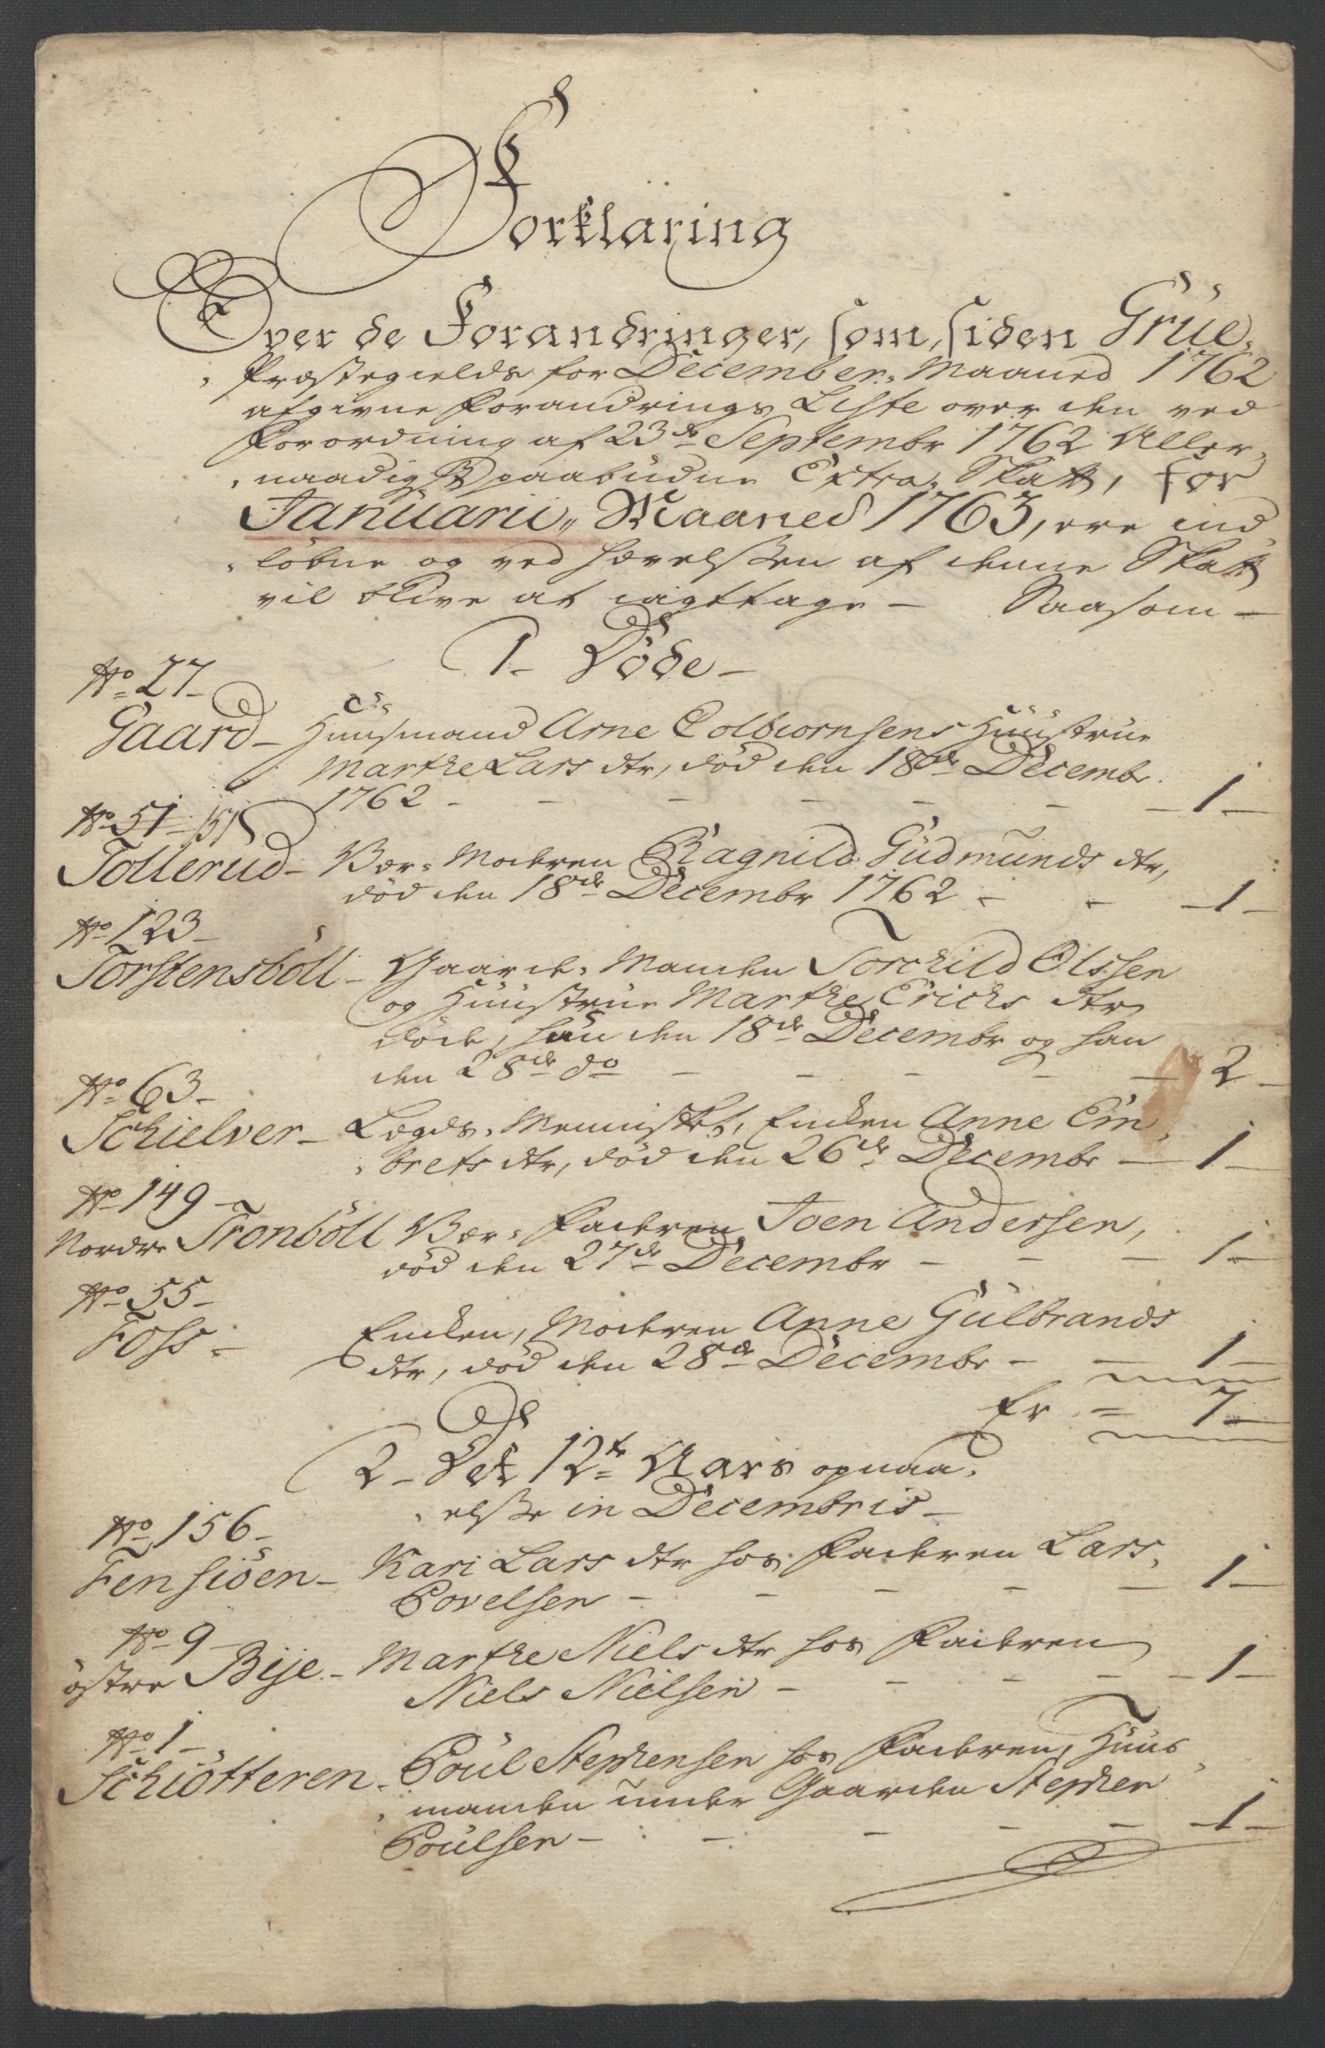 Forklaring
Over de Forandringer, som, siden Grue,
Præstegields for December, Maaned 1762
afgivne Forandrings Liste over den ved
Forordning af 23de Septembr 1762 Aller,
naadigst paabudne Extra, Skatt, for
Januarii, Maaned 1763, ere ind
løbne og ved Hævelsen af denne Skatt
vil blive at iagttage - Saasom -
1 - Døde -
No 27 -
Gaard - Huusmand Arne Colbiornsens Huustrue
Marthe Lars dtr, død den 18de Decembr
1762 - - - - - - 1 -
No 51 - /51/
Tollerud - Vær, Moderen Ragnild Gudmunds dtr,
død den 18de Decembr 1762 - - - 1 -
No 123 -
Torstensböll - Gaard, Manden Torchild Olssen
og Huustrue Marthe Erichs dtr
døde, hun den 18de Decembr og han
den 28de do - - - - - 2 -
No 63 -
Schielver - Lægds, Mennisket, Enken Anne Em,
brets dtr, død den 26de Decembr - 1 -
No 149 -
Nordre Tronböll Vær, Faderen Joen Andersen,
død den 27de Decembr - - - 1 -
No 55 -
Foss - Enken, Moderen Anne Gulbrands
dtr, død den 28de Decembr - - 1 -
Er = 7 -
2 - Det 12te Aars opnaa,
else in Decembris -
No 156 -
Fensiöen - Kari Lars dtr hos Faderen Lars
Povelsen - - - - - 1 -
No 9 -
østre Bije - Marthe Niels dtr hos Faderen
Niels Nielsen - - - - - 1 -
No 1 -
Schiötteren - Poul Stephensen hos Faderen, Huus
manden under Gaarden Stephen
Poulsen - - - - - 1 -